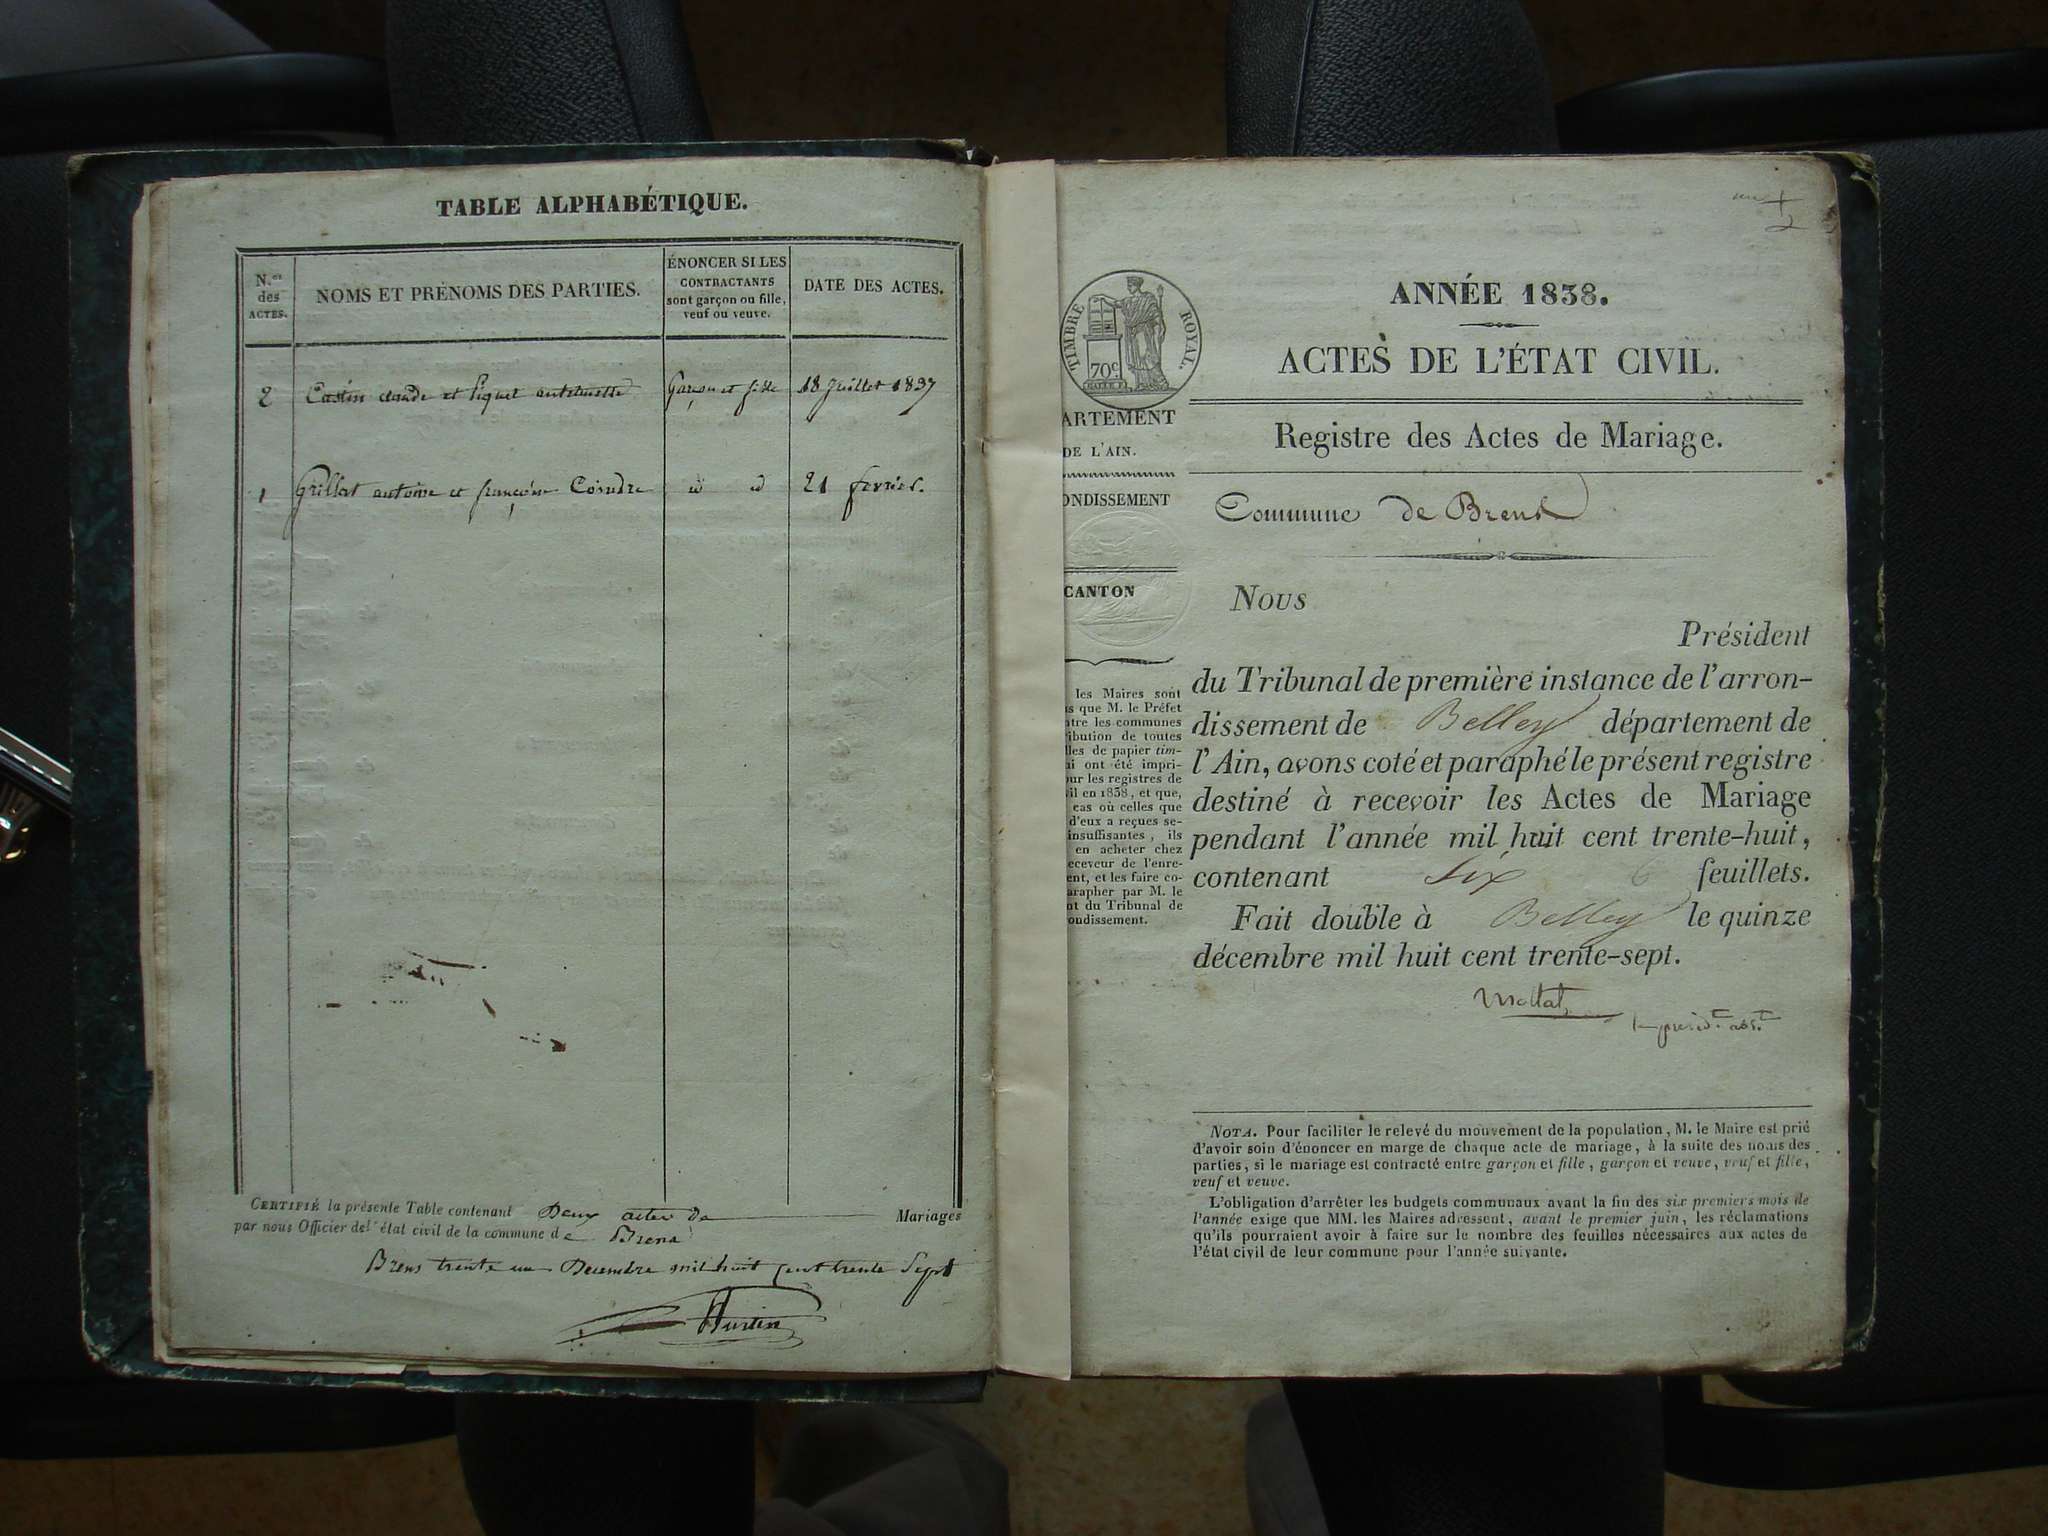 TABLE ALPHABÉTIQUE.
N.os des ACTES.
NOMS ET PRÉNOMS DES PARTIES.
ÉNONCER SI LES
CONTRACTANTS
sont garçon ou fille,
veuf ou veuve.
DATE DES ACTES.
2 Castin claude et Piquet antelmette Garçon et fille 18 Juillet 1837
1 Grillat antoine et françoise Coindre id id 21 fevrier.
CERTIFIÉ la présente Table contenant Deux actes de Mariages
par nous Officier de l'état civil de la commune de Brens
Brens trente un Decembre mil huit cent trente Sept
TIMBRE ROYAL.
70c.
ARTEMENT
DE L'AIN.
ONDISSEMENT
CANTON
les Maires sont
s que M. le Préfet
ntre les communes
ribution de toutes
lles de papier tim-
ui ont été impri-
ur les registres de
vil en 1838, et que,
cas où celles que
d'eux a reçues se-
insuffisantes, ils
en acheter chez
eceveur de l'enre-
ent, et les faire co-
arapher par M. le
nt du Tribunal de
ondissement.
ANNÉE 1838.
ACTES DE L'ÉTAT CIVIL.
Registre des Actes de Mariage.
Commune de Brens
Nous
Président
du Tribunal de première instance de l'arron-
dissement de Belley département de
l'Ain, avons coté et paraphé le présent registre
destiné à recevoir les Actes de Mariage
pendant l'année mil huit cent trente-huit,
contenant Six 6 feuillets.
Fait double à Belley le quinze
décembre mil huit cent trente-sept.
Mollat
le présidt. abst.
NOTA. Pour faciliter le relevé du mouvement de la population, M. le Maire est prié
d'avoir soin d'énoncer en marge de chaque acte de mariage, à la suite des noms des
parties, si le mariage est contracté entre garçon et fille, garçon et veuve, veuf et fille,
veuf et veuve.
L'obligation d'arrêter les budgets communaux avant la fin des six premiers mois de
l'année exige que MM. les Maires adressent, avant le premier juin, les réclamations
qu'ils pourraient avoir à faire sur le nombre des feuilles nécessaires aux actes de
l'état civil de leur commune pour l'année suivante.